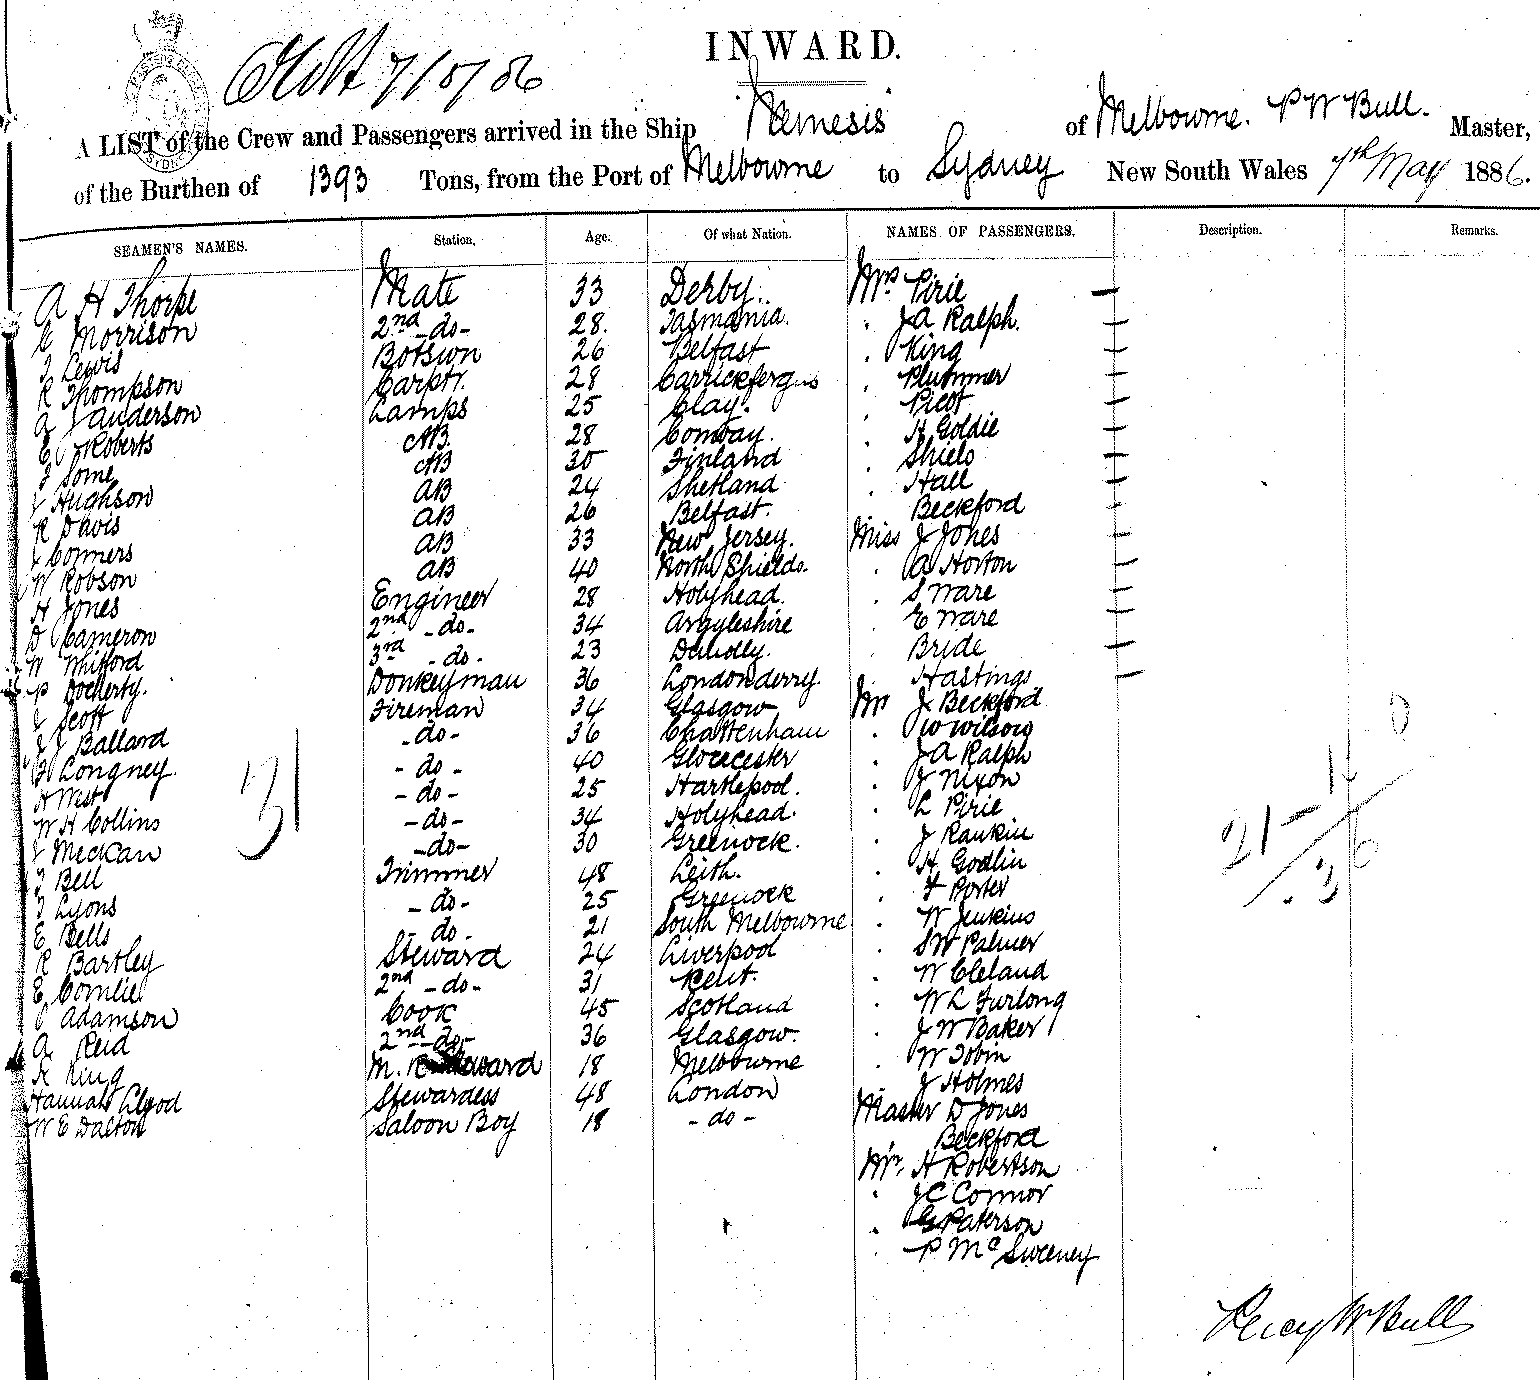 7/5/86
INWARD.
A LIST of the Crew and Passengers arrived in the Ship Nemesis of Melbourne. P W Bull. Master,
of the Burthen of 1393 Tons, from the Port of Melbourne to Sydney New South Wales 7th May 1886.
SEAMEN'S NAMES. Station. Age. Of what Nation. NAMES OF PASSENGERS. Description. Remarks.
A H Thorpe Mate 33 Derby. Mrs Pirie
Morrison 2nd -do- 28. Tasmania. . J A Ralph.
Lewis Botswn 26 Belfast . King
R Thompson Carptr. 28 Carrickfergus . Plummer
A J Anderson Lamps 25 Clay. . Picot
E J Roberts AB. 28 Conway. . H Goldie
Some AB 30 Finland . Shiels
J Hughson AB 24 Shetland . Hall
R Davis AB 26 Belfast. Beckford
J Conners AB 33 New Jersey. Miss J Jones
W Robson AB 40 North Shields. . A Horton
H Jones Engineer 28 Holyhead. . S Ware
D Cameron 2nd -do- 34 Argyleshire . E Ware
W Whifford 3rd -do- 23 . Bride
P Docherty. Donkeyman 36 Londonderry. . Hastings
J Scott Fireman 34 Glasgow Mr J Beckford
J J Ballard -do- 36 Chattenham . W Wilson
Longney. -do- 40 Glocecester . J A Ralph
H West -do- 25 Hartlepool. . J Nixon
W H Collins -do- 34 Holyhead. . L Pirie
J Meckan -do- 30 Greenock. . J Rankin
Bell Trimmer 48 Leith. . H Godlin
Lyons -do- 25 Greenock . F Porter
E Bells -do- 21 South Melbourne . W Jenkins
R Bartley Steward 24 Liverpool . S W Palmer
E Comlie 2nd -do- 31 Kent. . W Cleland
Adamson Cook 45 Scotland . W L Furlong
A Reid 2nd -do- 36 Glasgow. . J W Baker
R King M. R. Steward 18 Melbourne . W Tobin
Hannah Llyod Stewardess 48 London . J Holmes
W E Dalton Saloon Boy 18 -do- Master D Jones
Beckford
Mr. H Robertson
. J C Connor
. G Paterson
. P McSweeney
31
21
Percy W Bull